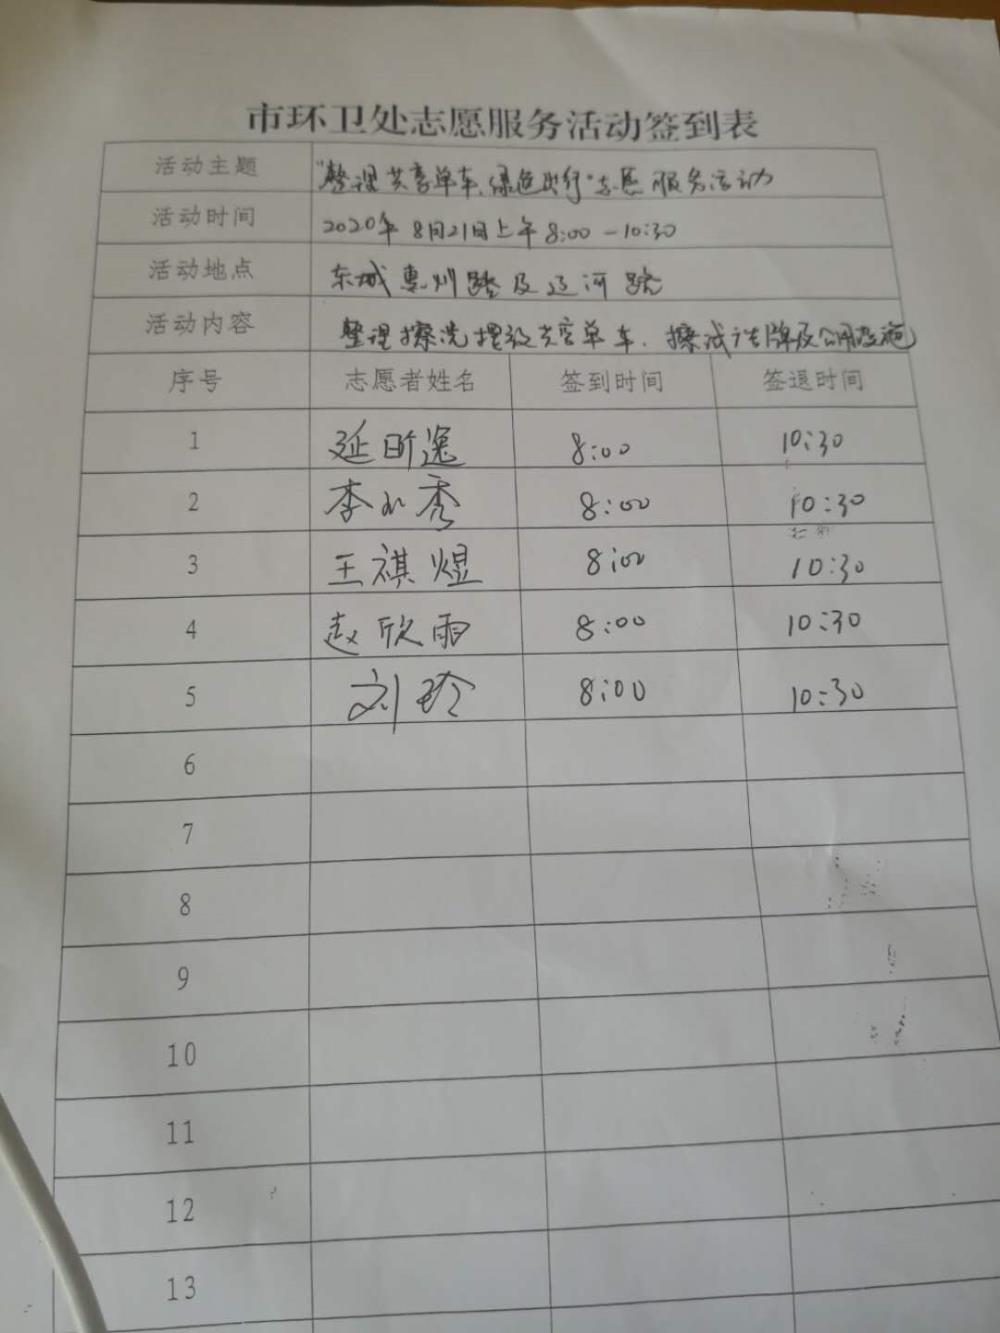 市环卫处志愿服务活动签到表
活动主题 "整理共享单车,绿色出行"志愿服务活动
活动时间 2020年8月21日上午8:00-10:30
活动地点 东城惠州路及辽河路
活动内容 整理擦洗摆放共享单车、擦拭广告牌及公用设施
序号 志愿者姓名 签到时间 签退时间
1 延昕逸 8:00 10:30
2 李 秀 8:00 10:30
3 王祺煜 8:00 10:30
4 赵欣雨 8:00 10:30
5 刘玲 8:00 10:30
6
7
8
9
10
11
12
13